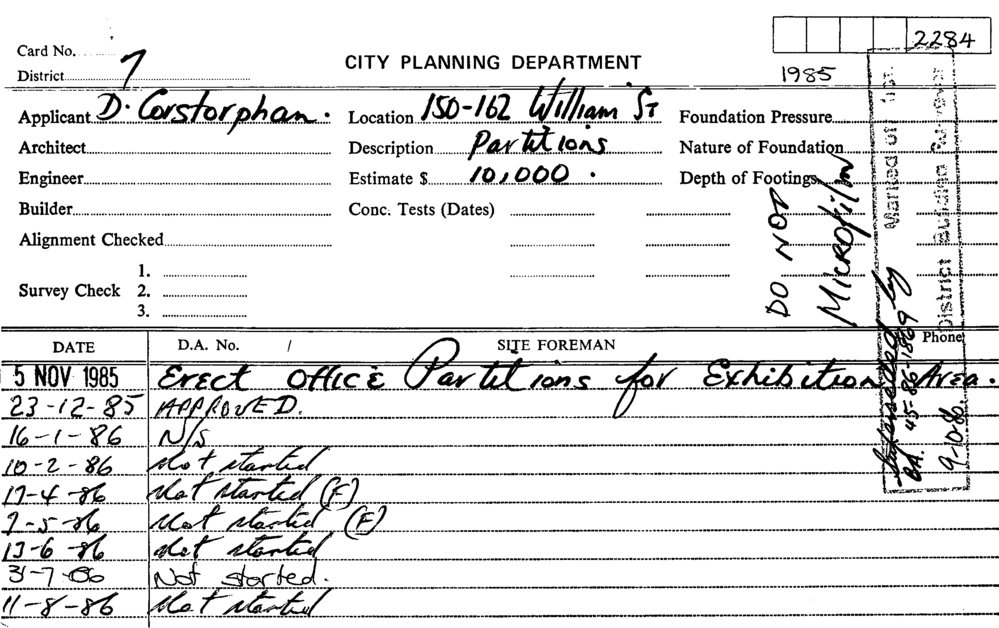 Card No.
2284
District 7
CITY PLANNING DEPARTMENT
1985
Applicant D. Corstorphan. Location 150-162 William St Foundation Pressure
Architect Description Partitions Nature of Foundation
Engineer Estimate $ 10,000. Depth of Footings
Builder Conc. Tests (Dates)
Alignment Checked
1.
Survey Check 2.
3.
DO NOT
Microfilm
Marked off
District Building Surveyor
Superseded by
BA. 45-86-1869
9-10-86.
DATE D.A. No. / SITE FOREMAN Phone
5 NOV 1985 Erect Office Partitions for Exhibition Area.
23-12-85 APPROVED.
16-1-86 N/s
10-2-86 Not started
17-4-86 Not started (F)
2-5-86 Not started (F)
13-6-86 Not started
31-7-86 Not started.
11-8-86 Not started